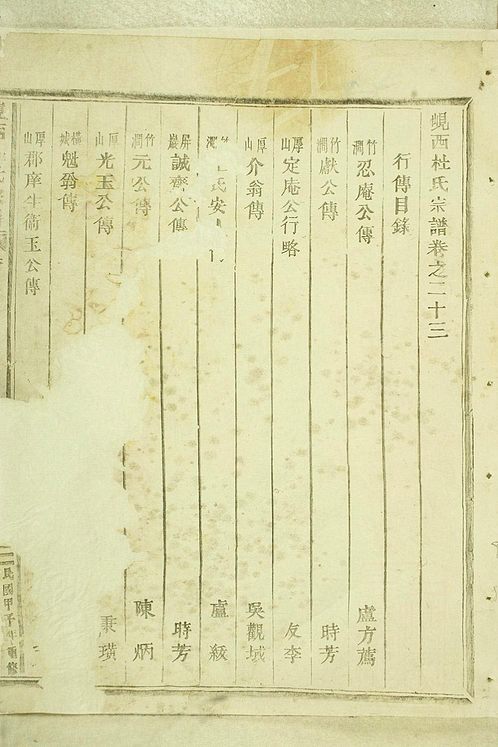 蜆西杜氏宗譜卷之二十三
行傳目錄
竹澗忍庵公傳 盧方薦
竹澗獻公傳 時芳
厚山定庵公行略 友李
厚山介翁傳 吳觀域
氏安 盧綬
屏巖誠齋公傳 時芳
竹澗元公傳 陳炳
厚山光玉公傳 秉璜
橫城魁翁傳
厚山郡庠生衛玉公傳
民國甲子年重修